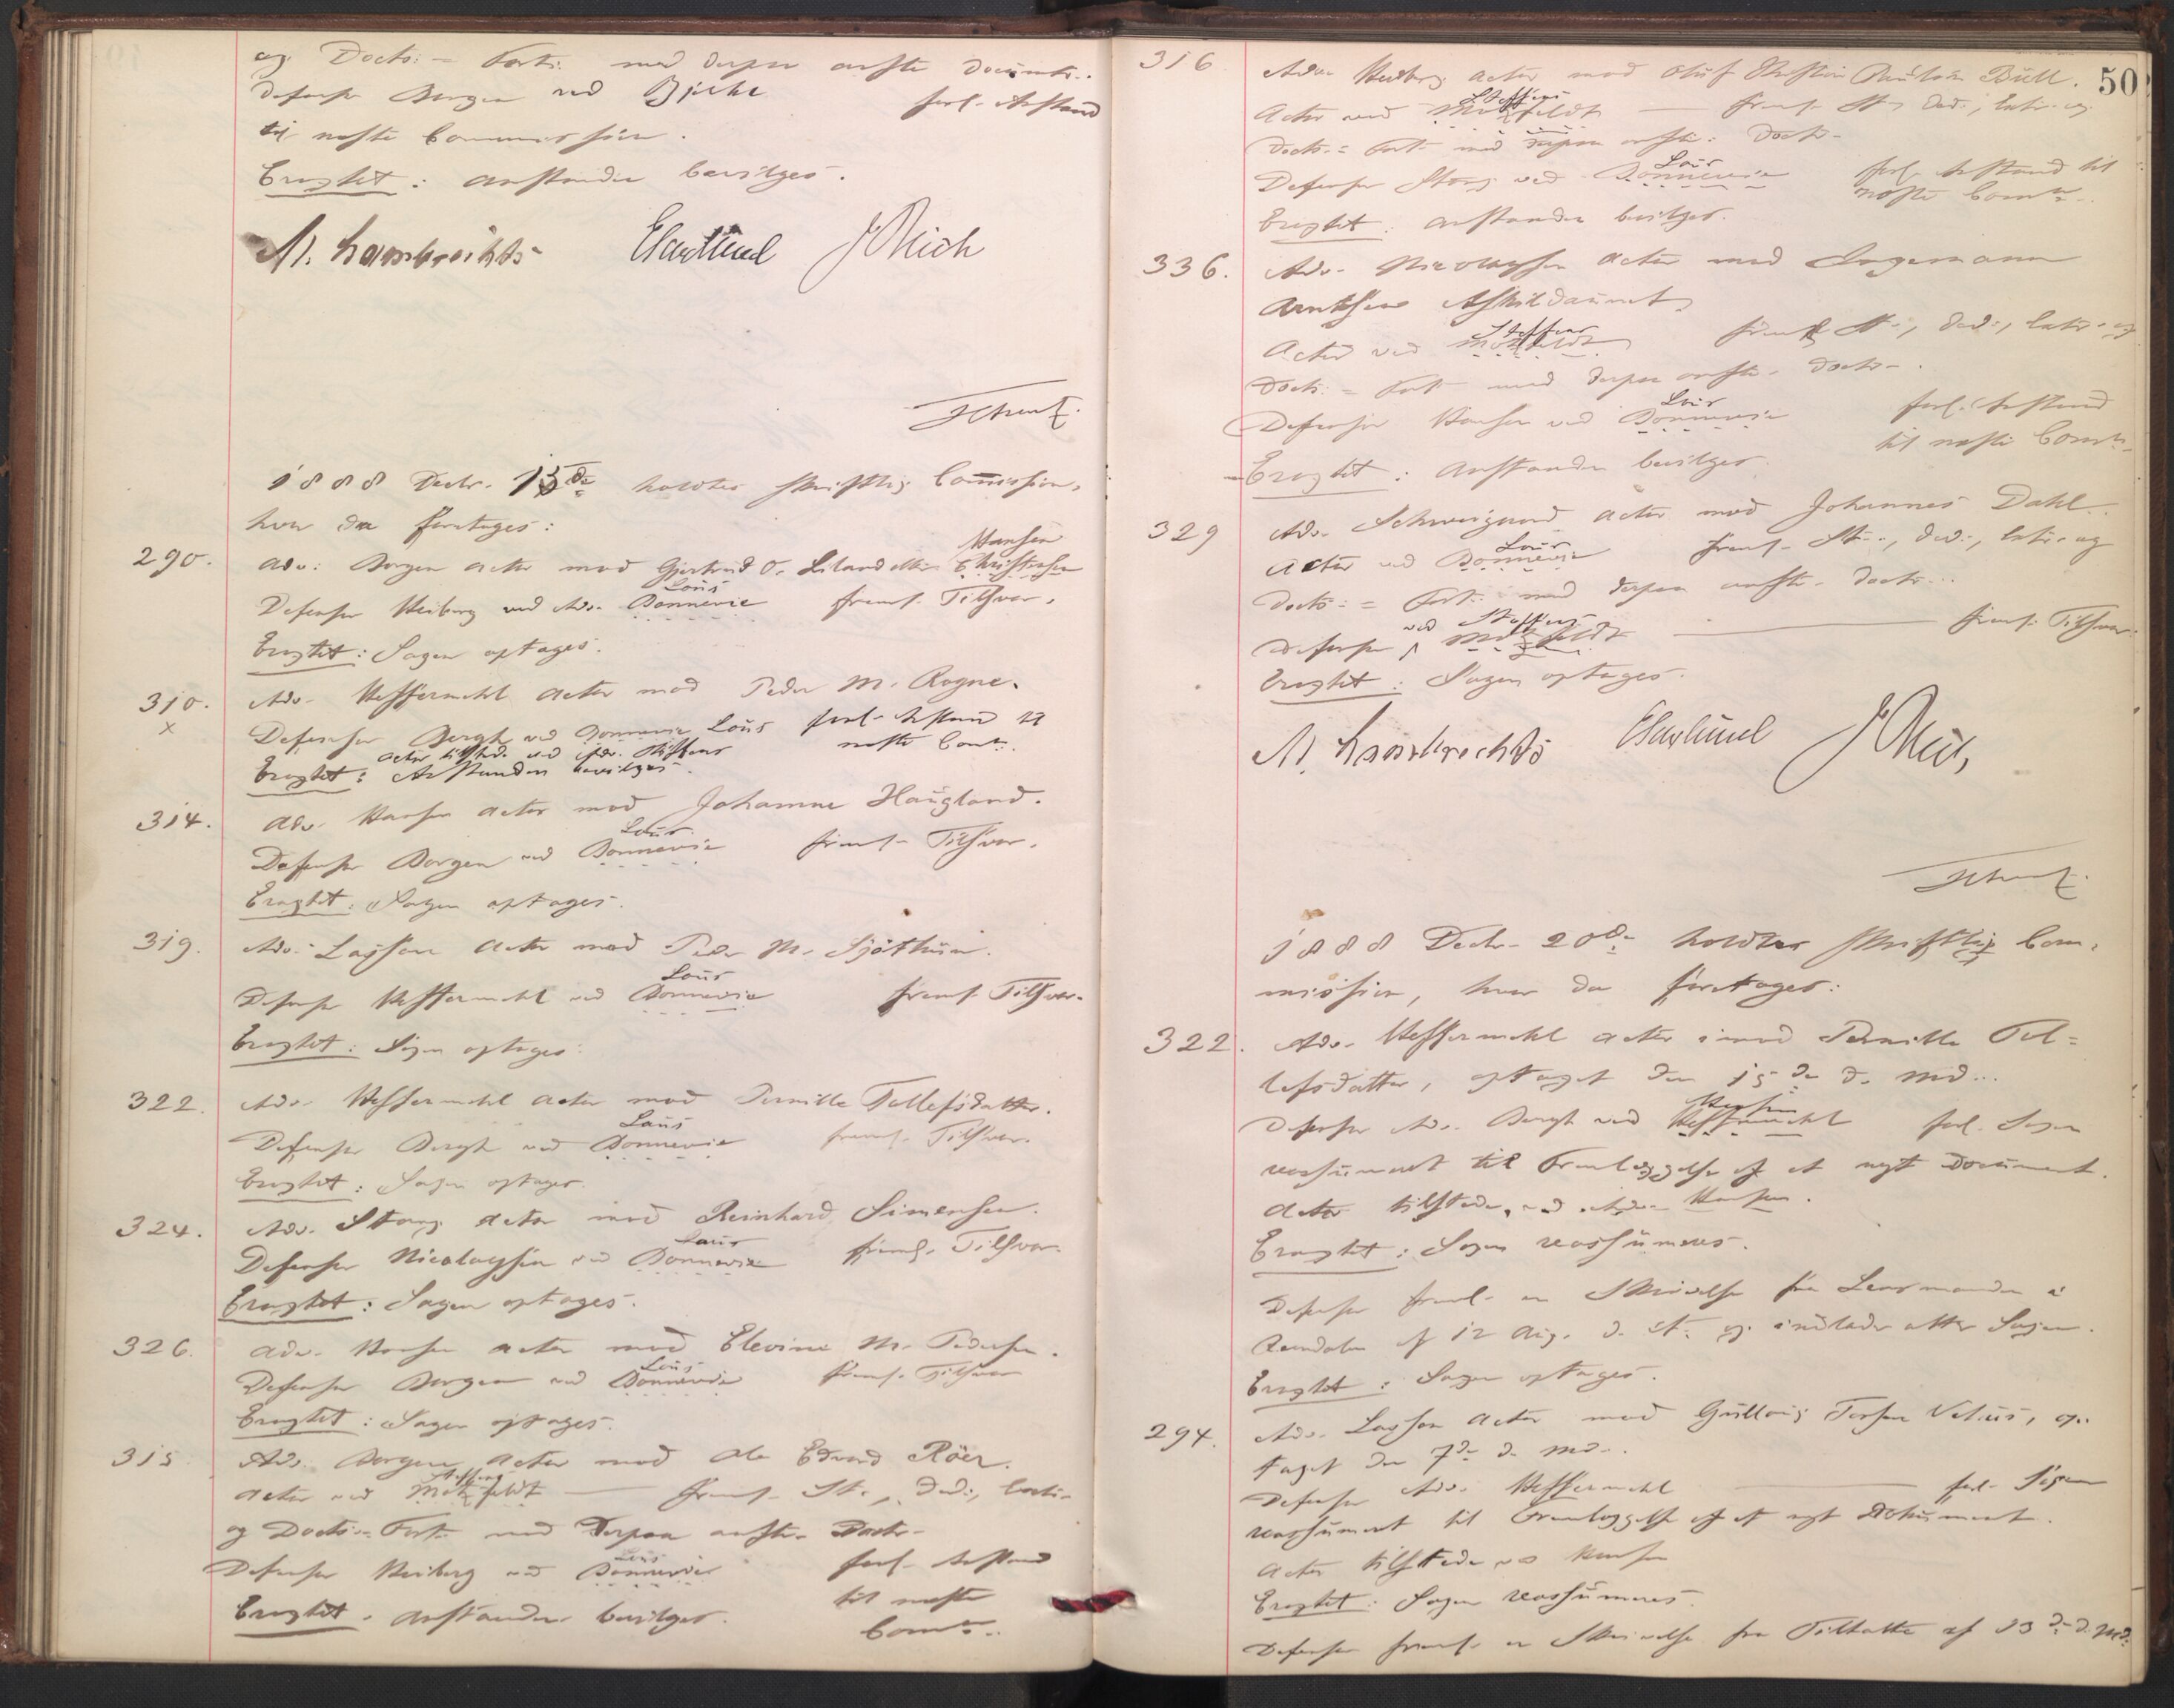 og Docts. = Fort. med derpaa anførte Documtr.
Defensor Borgen ved Bjelke forl. Anstand
til næste Commission.
Eragtet: Anstanden bevilges.
M. Lambrechts EHagerup JReich
1888 Decbr. 13de holdtes skriftlig Commission,
hvor da foretages:
Hansen
290. Adv. Borgen Actor mod Gjertrud O. Liland eller Christensen
Lous
Defensor Heiberg ved Adv. Bonnevie freml. Tilsvar.
Eragtet: Sagen optages.
310. Adv. Heffermehl Actor mod Peder M. Rogne.
x
Defensor Bergh ved Bonnevie Lous forl. Anstand til
Actor tilstede ved Adv. Steffens næste Com.
Eragtet: Anstanden bevilges.
314. Adv. Hansen Actor mod Johanne Haugland.
Lous
Defensor Borgen ved Bonnevie freml. Tilsvar.
Eragtet: Sagen optages.
319. Adv. Lasson Actor mod Peder M. Sjøthun.
Lous
Defensor Heffermehl ved Bonnevie freml. Tilsvar.
Eragtet: Sagen optages.
322. Adv. Heffermehl Actor mod Pernille Tellefsdatter.
Lous
Defensor Bergh ved Bonnevie freml. Tilsvar.
Eragtet: Sagen optages.
324. Adv. Stang Actor mod Reinhard Simensen.
Lous
Defensor Nicolaysen ved Bonnevie freml. Tilsvar.
Eragtet: Sagen optages.
326. Adv. Hansen Actor mod Elevine M. Pedersen.
Lous
Defensor Borgen ved Bonnevie freml. Tilsvar
Eragtet: Sagen optages.
315 Adv. Borgen Actor mod Ole Edvard Röer.
Steffens
Actor ved Motzfeldt freml. St., Ded.,
og Docts. = Fort. med derpaa anførte Docts.
Lous
Defensor Heiberg ved Bonnevie forl. Anstand
til næste
Eragtet. Anstanden bevilges. Comn.
50
316 Adv. Heiberg Actor mod Oluf Bull.
Steffens
Actor ved Motzfeldt freml. St., Ded., og
Docts. = Fort. med derpaa anførte Docts.
Lous
Defensor Stang ved Bonnevie forl. Anstand til
næste Comn.
Eragtet: Anstanden bevilges.
336. Adv. Nicolaysen Actor mod Ingemann
Arntsen
Steffens
Actor ved Motzfeldt freml. St., Ded., og
Docts. = Fort. med derpaa anførte Docts.
Lous
Defensor Hansen ved Bonnevie forl. Anstand
til næste Comn.
Eragtet: Anstanden bevilges.
329 Adv. Schweigaard Actor mod Johannes Dahl.
Lous
Actor ved Bonnevie freml. St., Ded., og
Docts. = Fort. med derpaa anførte Docts.
ved Steffens
Defensor Motzfeldt freml. Tilsvar.
Eragtet: Sagen optages.
M. Lambrechts EHagerup JReich
1888 Decbr. 20de holdtes skriftlig Com-
mission, hvor da foretages:
322. Adv. Heffermehl Actor imod Pernille Tel=
lefsdatter, optaget den 15de d. Md.
Hansen
Defensor Adv. Bergh ved Heffermehl forl. Sagen
reassumeret til Fremlæggelse af et nyt Document.
Actor tilstede ved Adv. Hansen.
Eragtet: Sagen reassumeres.
Defensor freml. en Skrivelse fra Lensmanden i
af 12 Aug. d. A. og indlader atter Sagen.
Eragtet: Sagen optages.
294. Adv. Lasson Actor mod Gullaug op-
taget den 7de d. Md.
Defensor Adv. Heffermehl forl. Sagen
reassumeret til Fremlæggelse af et nyt Dokument.
Actor tilstede ved Hansen
Eragtet: Sagen reassumeres.
Defensor freml. en Skrivelse fra Tiltalte af 13de d. Md.